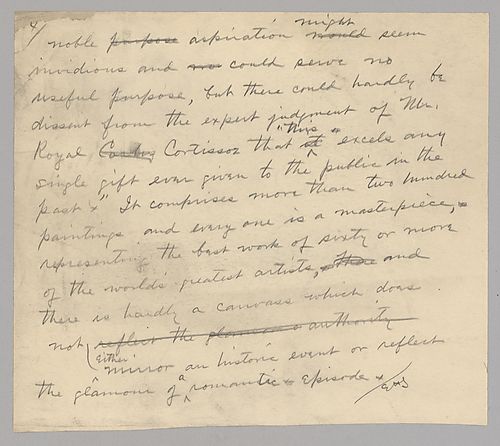 4/
might
noble purpose aspiration would seem
invidious and no could serve no
useful purpose, but there could hardly be
dissent from the expert judgment of Mr.
Royal Cortissoz that "this * excels any
single gift ever given to the public in the
past *" It comprises more than two hundred
paintings and every one is a masterpiece,
representing the best work of sixty or more
of the world's greatest artists, and
there is hardly a canvass which does
not reflect the glamour authority
either mirror an historic event or reflect
the glamour of a romantic episode